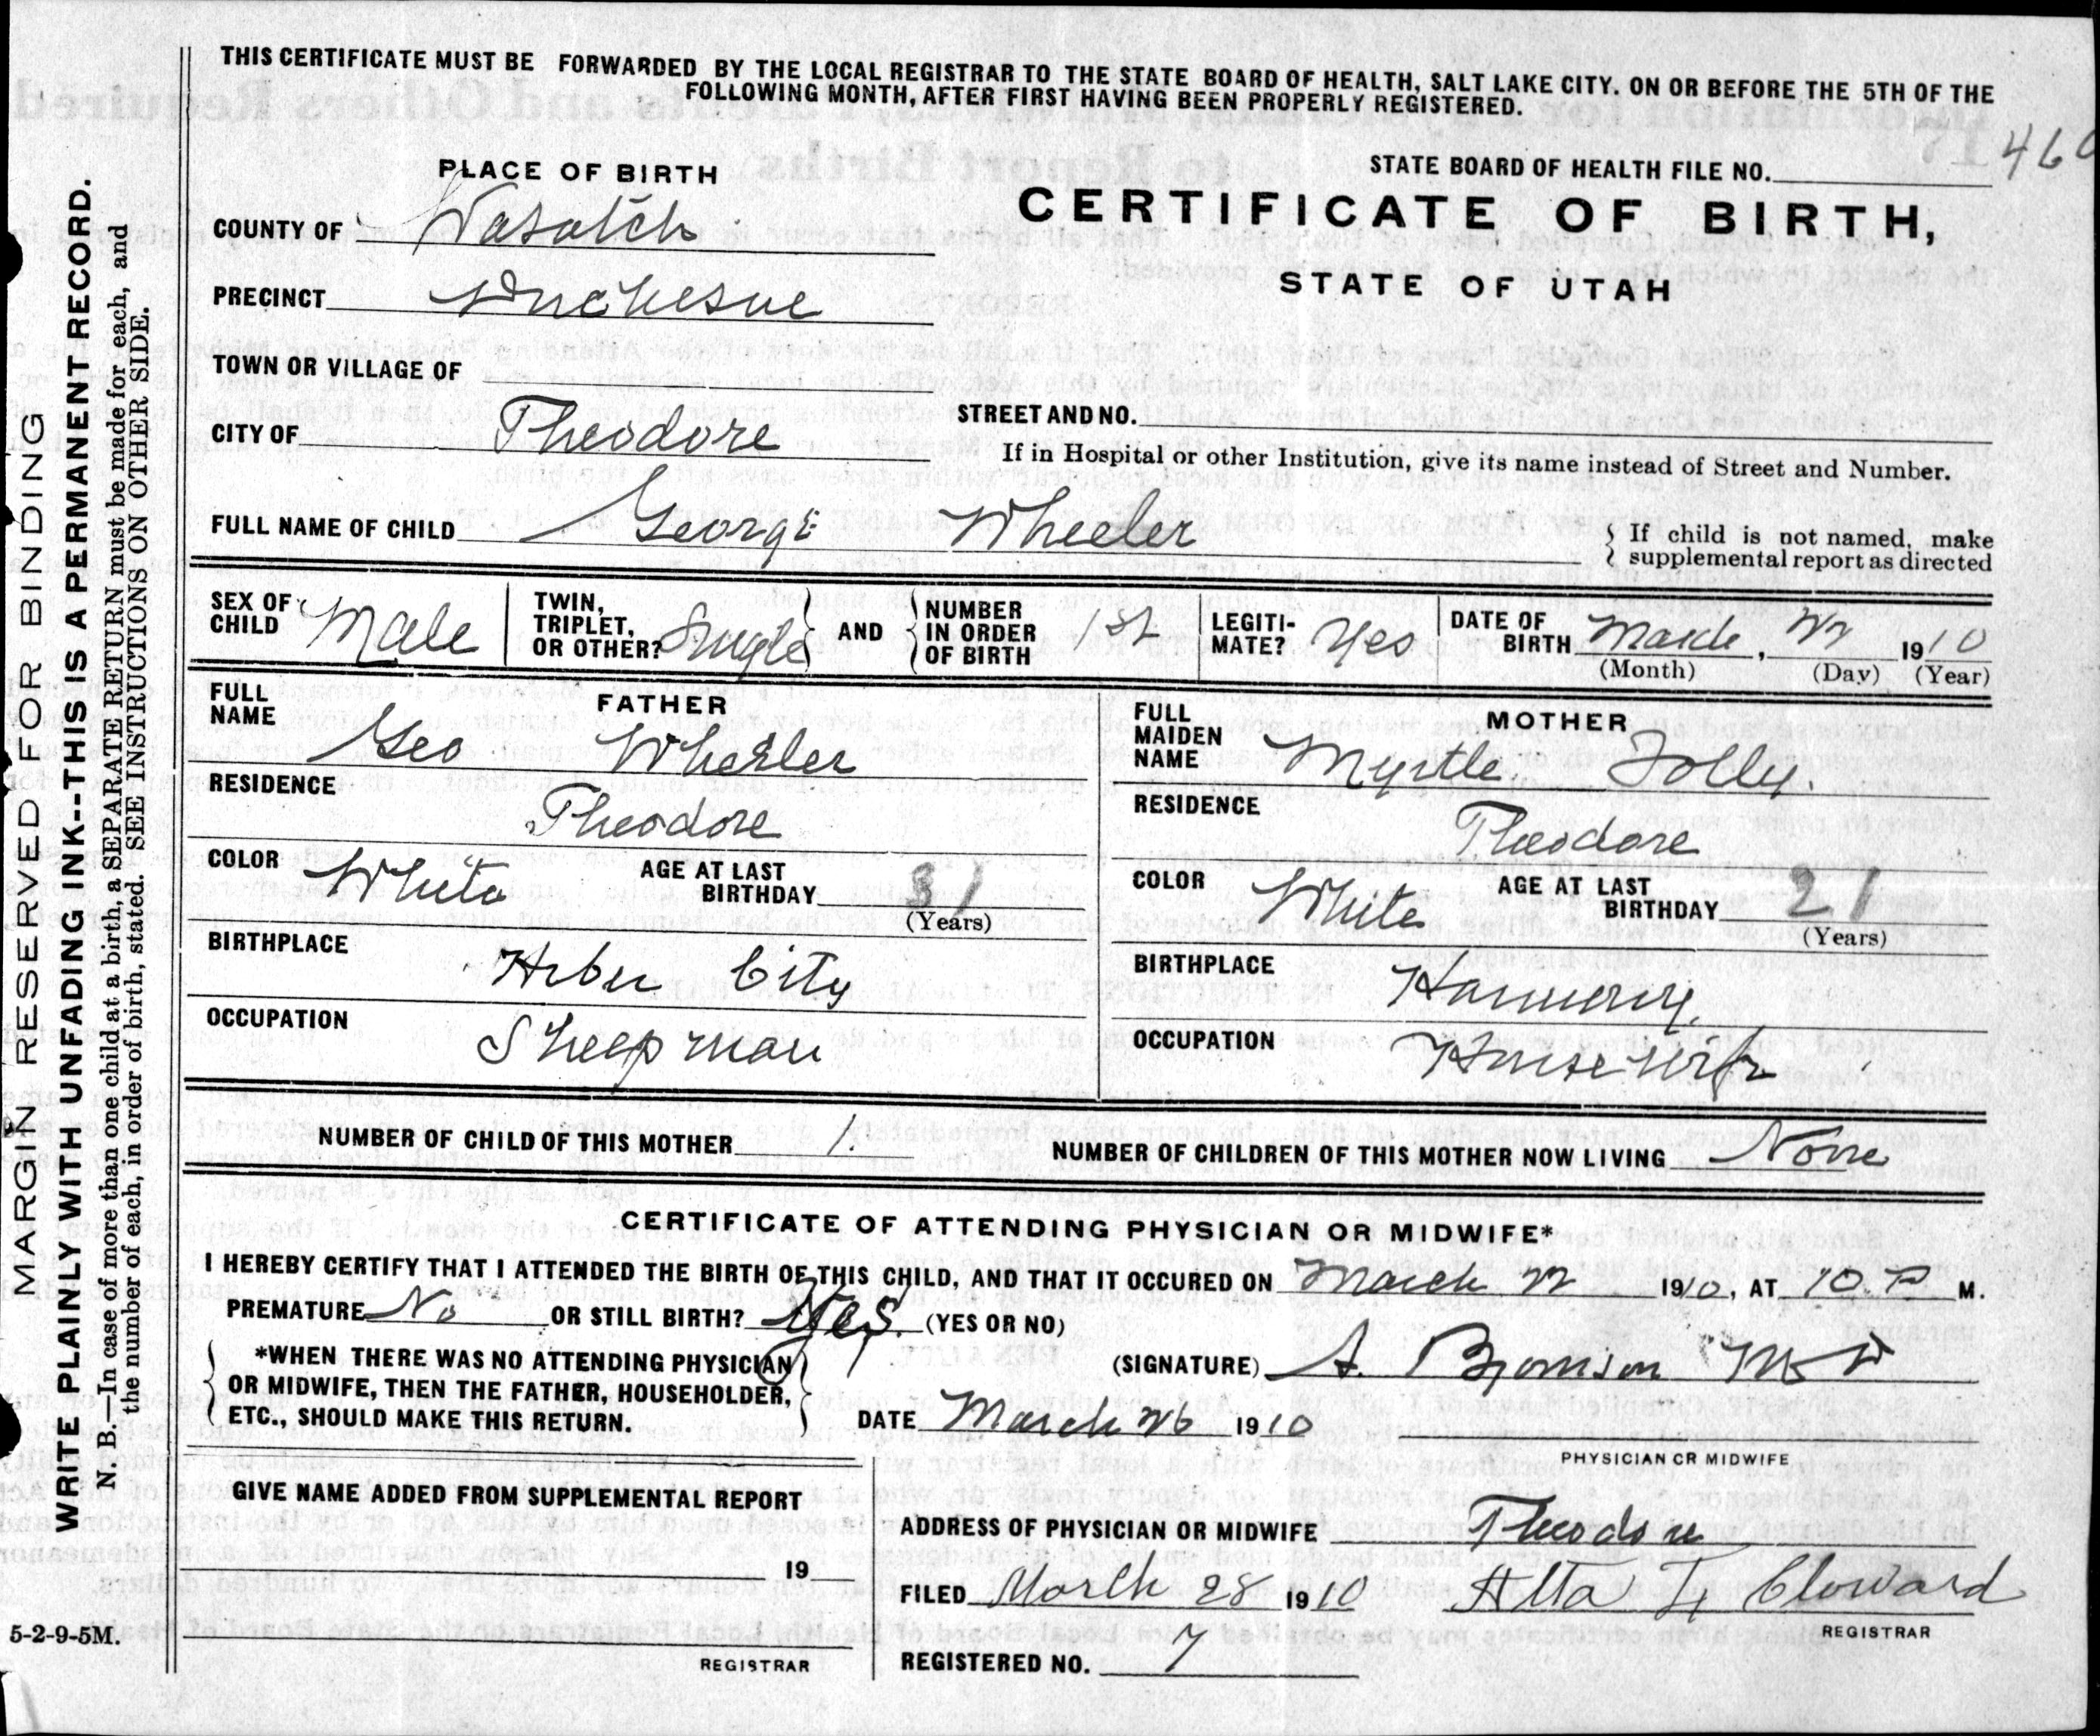 THIS CERTIFICATE MUST BE FORWARDED BY THE LOCAL REGISTRAR TO THE STATE BOARD OF HEALTH, SALT LAKE CITY. ON OR BEFORE THE 5TH OF THE
FOLLOWING MONTH, AFTER FIRST HAVING BEEN PROPERLY REGISTERED.
PLACE OF BIRTH
STATE BOARD OF HEALTH FILE NO. 460
CERTIFICATE OF BIRTH,
STATE OF UTAH
COUNTY OF Wasatch
PRECINCT Duchesne
TOWN OR VILLAGE OF
CITY OF Theodore
STREET AND NO.
If in Hospital or other Institution, give its name instead of Street and Number.
FULL NAME OF CHILD George Wheeler
If child is not named, make
supplemental report as directed
SEX OF CHILD Male
TWIN, TRIPLET, OR OTHER? Single
AND NUMBER IN ORDER OF BIRTH 1st
LEGITI-MATE? Yes
DATE OF BIRTH March, 22 1910
(Month) (Day) (Year)
FATHER
FULL NAME Geo Wheeler
RESIDENCE Theodore
COLOR White AGE AT LAST BIRTHDAY 31
(Years)
BIRTHPLACE Heber City
OCCUPATION Sheepman
MOTHER
FULL MAIDEN NAME Myrtle Jolly.
RESIDENCE Theodore
COLOR White AGE AT LAST BIRTHDAY 21
(Years)
BIRTHPLACE
OCCUPATION Housewife
NUMBER OF CHILD OF THIS MOTHER 1.
NUMBER OF CHILDREN OF THIS MOTHER NOW LIVING None
CERTIFICATE OF ATTENDING PHYSICIAN OR MIDWIFE*
I HEREBY CERTIFY THAT I ATTENDED THE BIRTH OF THIS CHILD, AND THAT IT OCCURED ON March 22 1910, AT 10 P. M.
PREMATURE No OR STILL BIRTH? Yes. (YES OR NO)
*WHEN THERE WAS NO ATTENDING PHYSICIAN
OR MIDWIFE, THEN THE FATHER, HOUSEHOLDER,
ETC., SHOULD MAKE THIS RETURN.
(SIGNATURE) A. MD
DATE March 26 1910
PHYSICIAN OR MIDWIFE
GIVE NAME ADDED FROM SUPPLEMENTAL REPORT
19
REGISTRAR
ADDRESS OF PHYSICIAN OR MIDWIFE Theodore
FILED March 28 1910 Alta Cloward
REGISTRAR
REGISTERED NO. 7
MARGIN RESERVED FOR BINDING
WRITE PLAINLY WITH UNFADING INK--THIS IS A PERMANENT RECORD.
N. B.—In case of more than one child at a birth, a SEPARATE RETURN must be made for each, and
the number of each, in order of birth, stated. SEE INSTRUCTIONS ON OTHER SIDE.
5-2-9-5M.